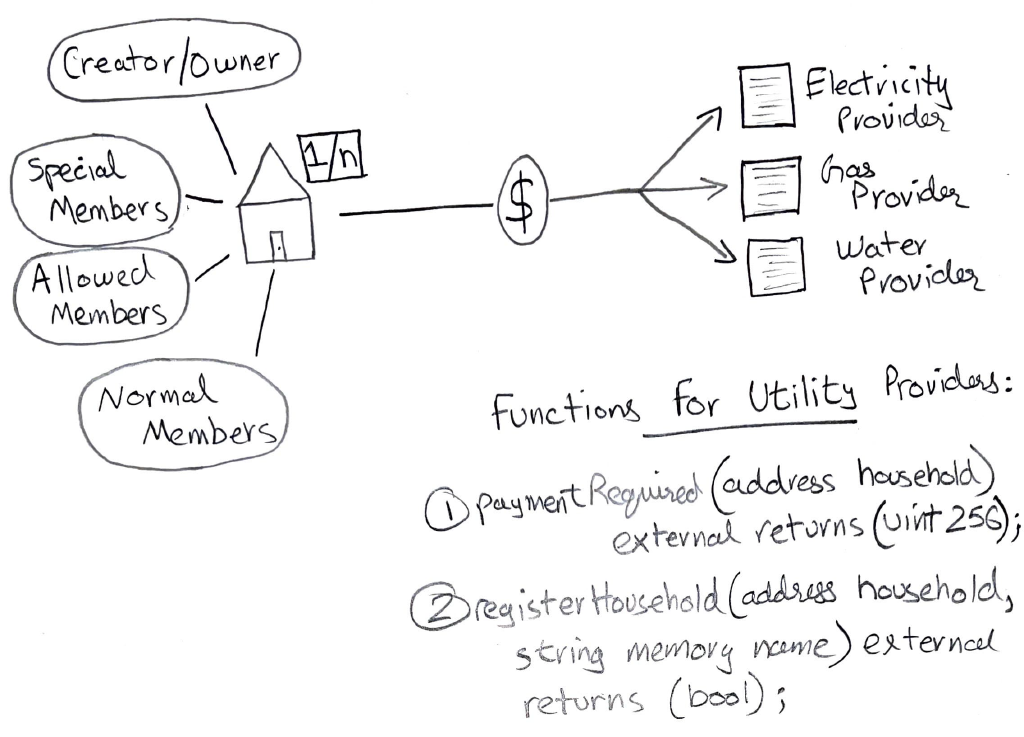 Creator/Owner
Special
Members
Allowed
Members
Normal
Members
1/n
$
Electricity
Provider
Gas
Provider
Water
Provider
Functions for Utility Providers:
① paymentRequired (address household)
external returns (uint 256);
② registerHousehold (address household,
string memory name) external
returns (bool);